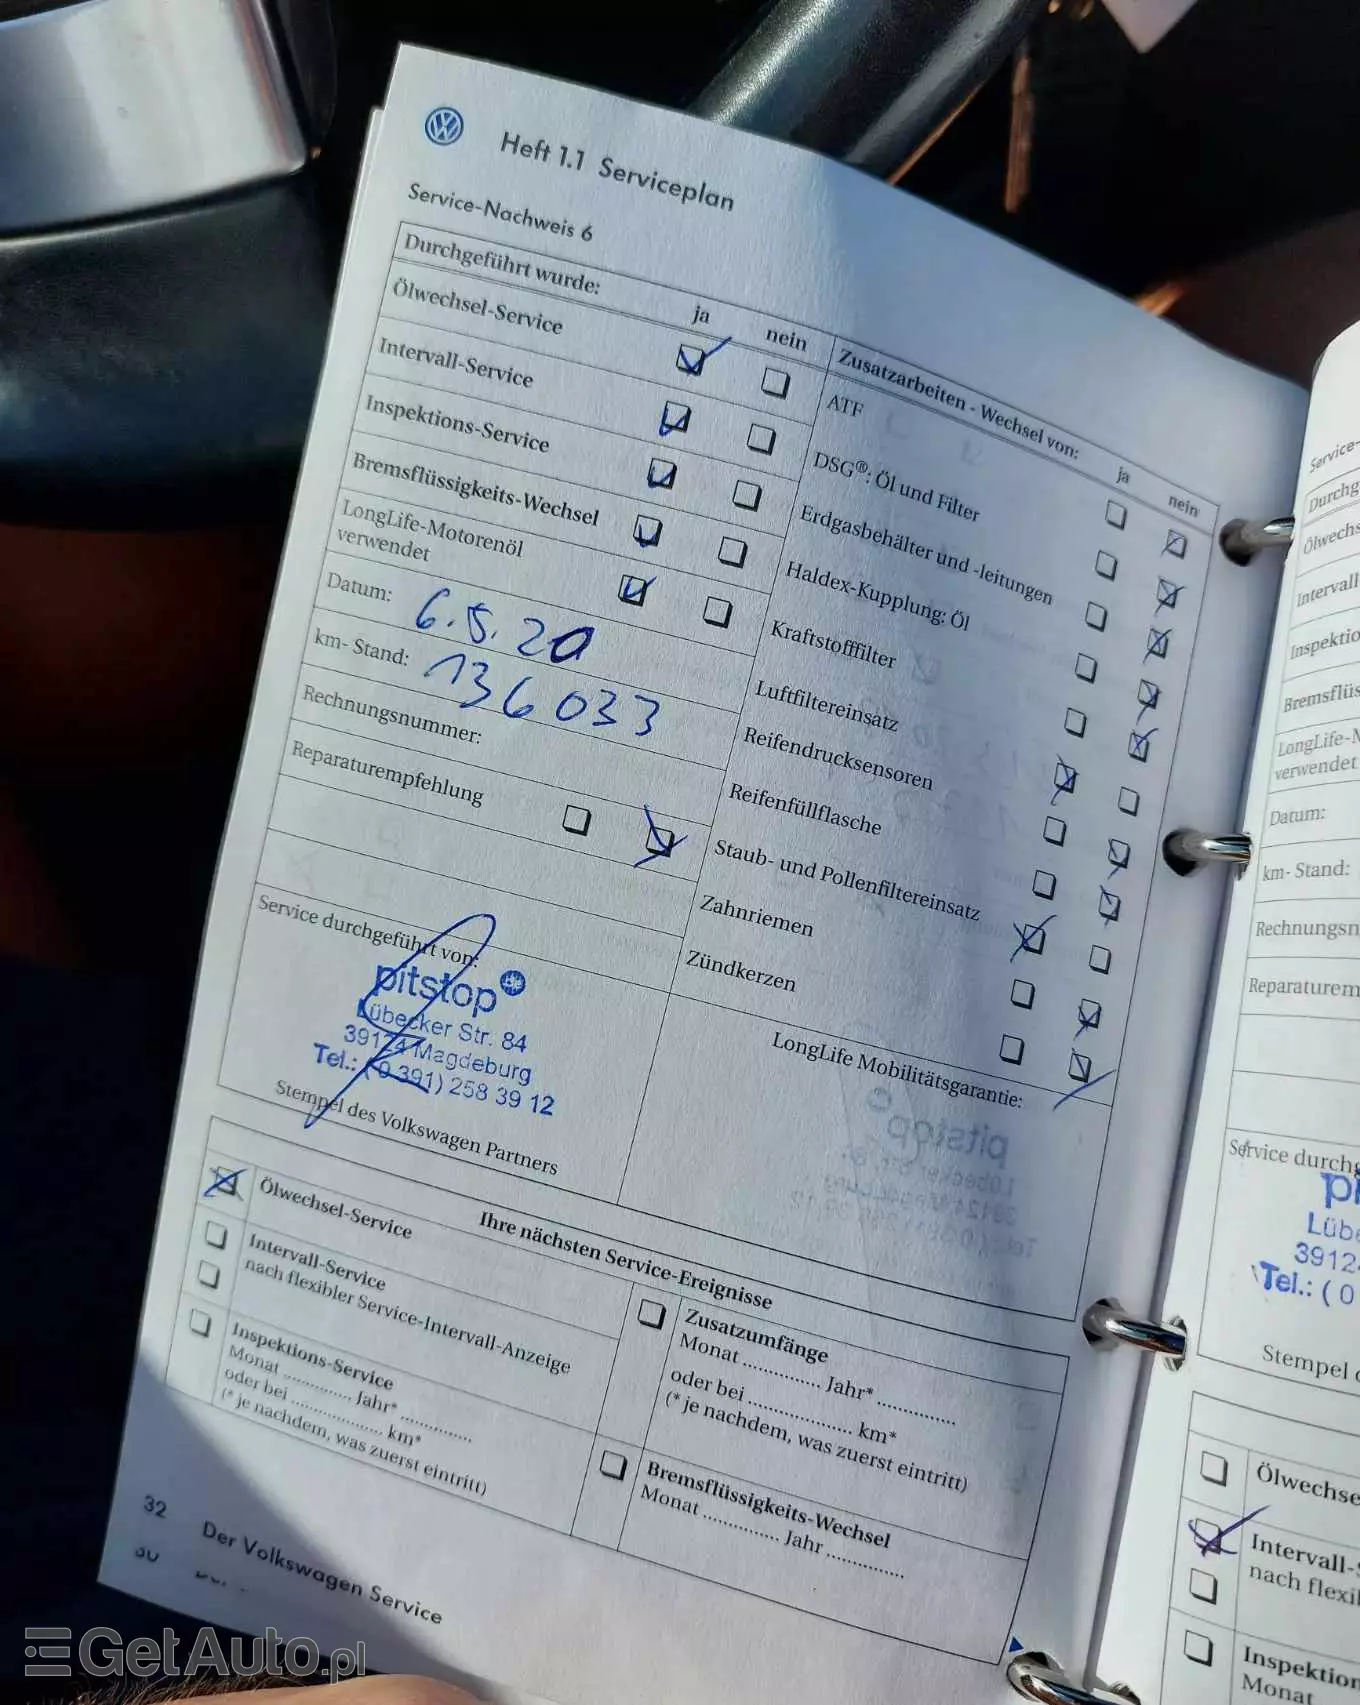 Heft 1.1 Serviceplan
Service-Nachweis 6
Durchgeführt wurde:
ja nein
Ölwechsel-Service
Intervall-Service
Inspektions-Service
Bremsflüssigkeits-Wechsel
LongLife-Motorenöl
verwendet
Datum: 6.5.20
km- Stand: 136033
Rechnungsnummer:
Reparaturempfehlung
Zusatzarbeiten - Wechsel von:
ja nein
ATF
DSG®: Öl und Filter
Erdgasbehälter und -leitungen
Haldex-Kupplung: Öl
Kraftstofffilter
Luftfiltereinsatz
Reifendrucksensoren
Reifenfüllflasche
Staub- und Pollenfiltereinsatz
Zahnriemen
Zündkerzen
Service durchgeführt von:
pitstop
Lübecker Str. 84
39124 Magdeburg
Tel.: (0 391) 258 39 12
Stempel des Volkswagen Partners
LongLife Mobilitätsgarantie:
Ihre nächsten Service-Ereignisse
Ölwechsel-Service
Intervall-Service
nach flexibler Service-Intervall-Anzeige
Inspektions-Service
Monat .............. Jahr* ..............
oder bei .................. km*
(* je nachdem, was zuerst eintritt)
Zusatzumfänge
Monat .............. Jahr* ..............
oder bei .................. km*
(* je nachdem, was zuerst eintritt)
Bremsflüssigkeits-Wechsel
Monat .............. Jahr ..............
32
Der Volkswagen Service
Service-
Durchg
Ölwechs
Intervall
Inspektio
Bremsflüs
LongLife-M
verwendet
Datum:
km- Stand:
Rechnungsn
Reparaturem
Service durchg
pi
Lübe
3912
Tel.: ( 0
Stempel d
Ölwechse
Intervall-
nach flexi
Inspektion
Monat
GetAuto.pl